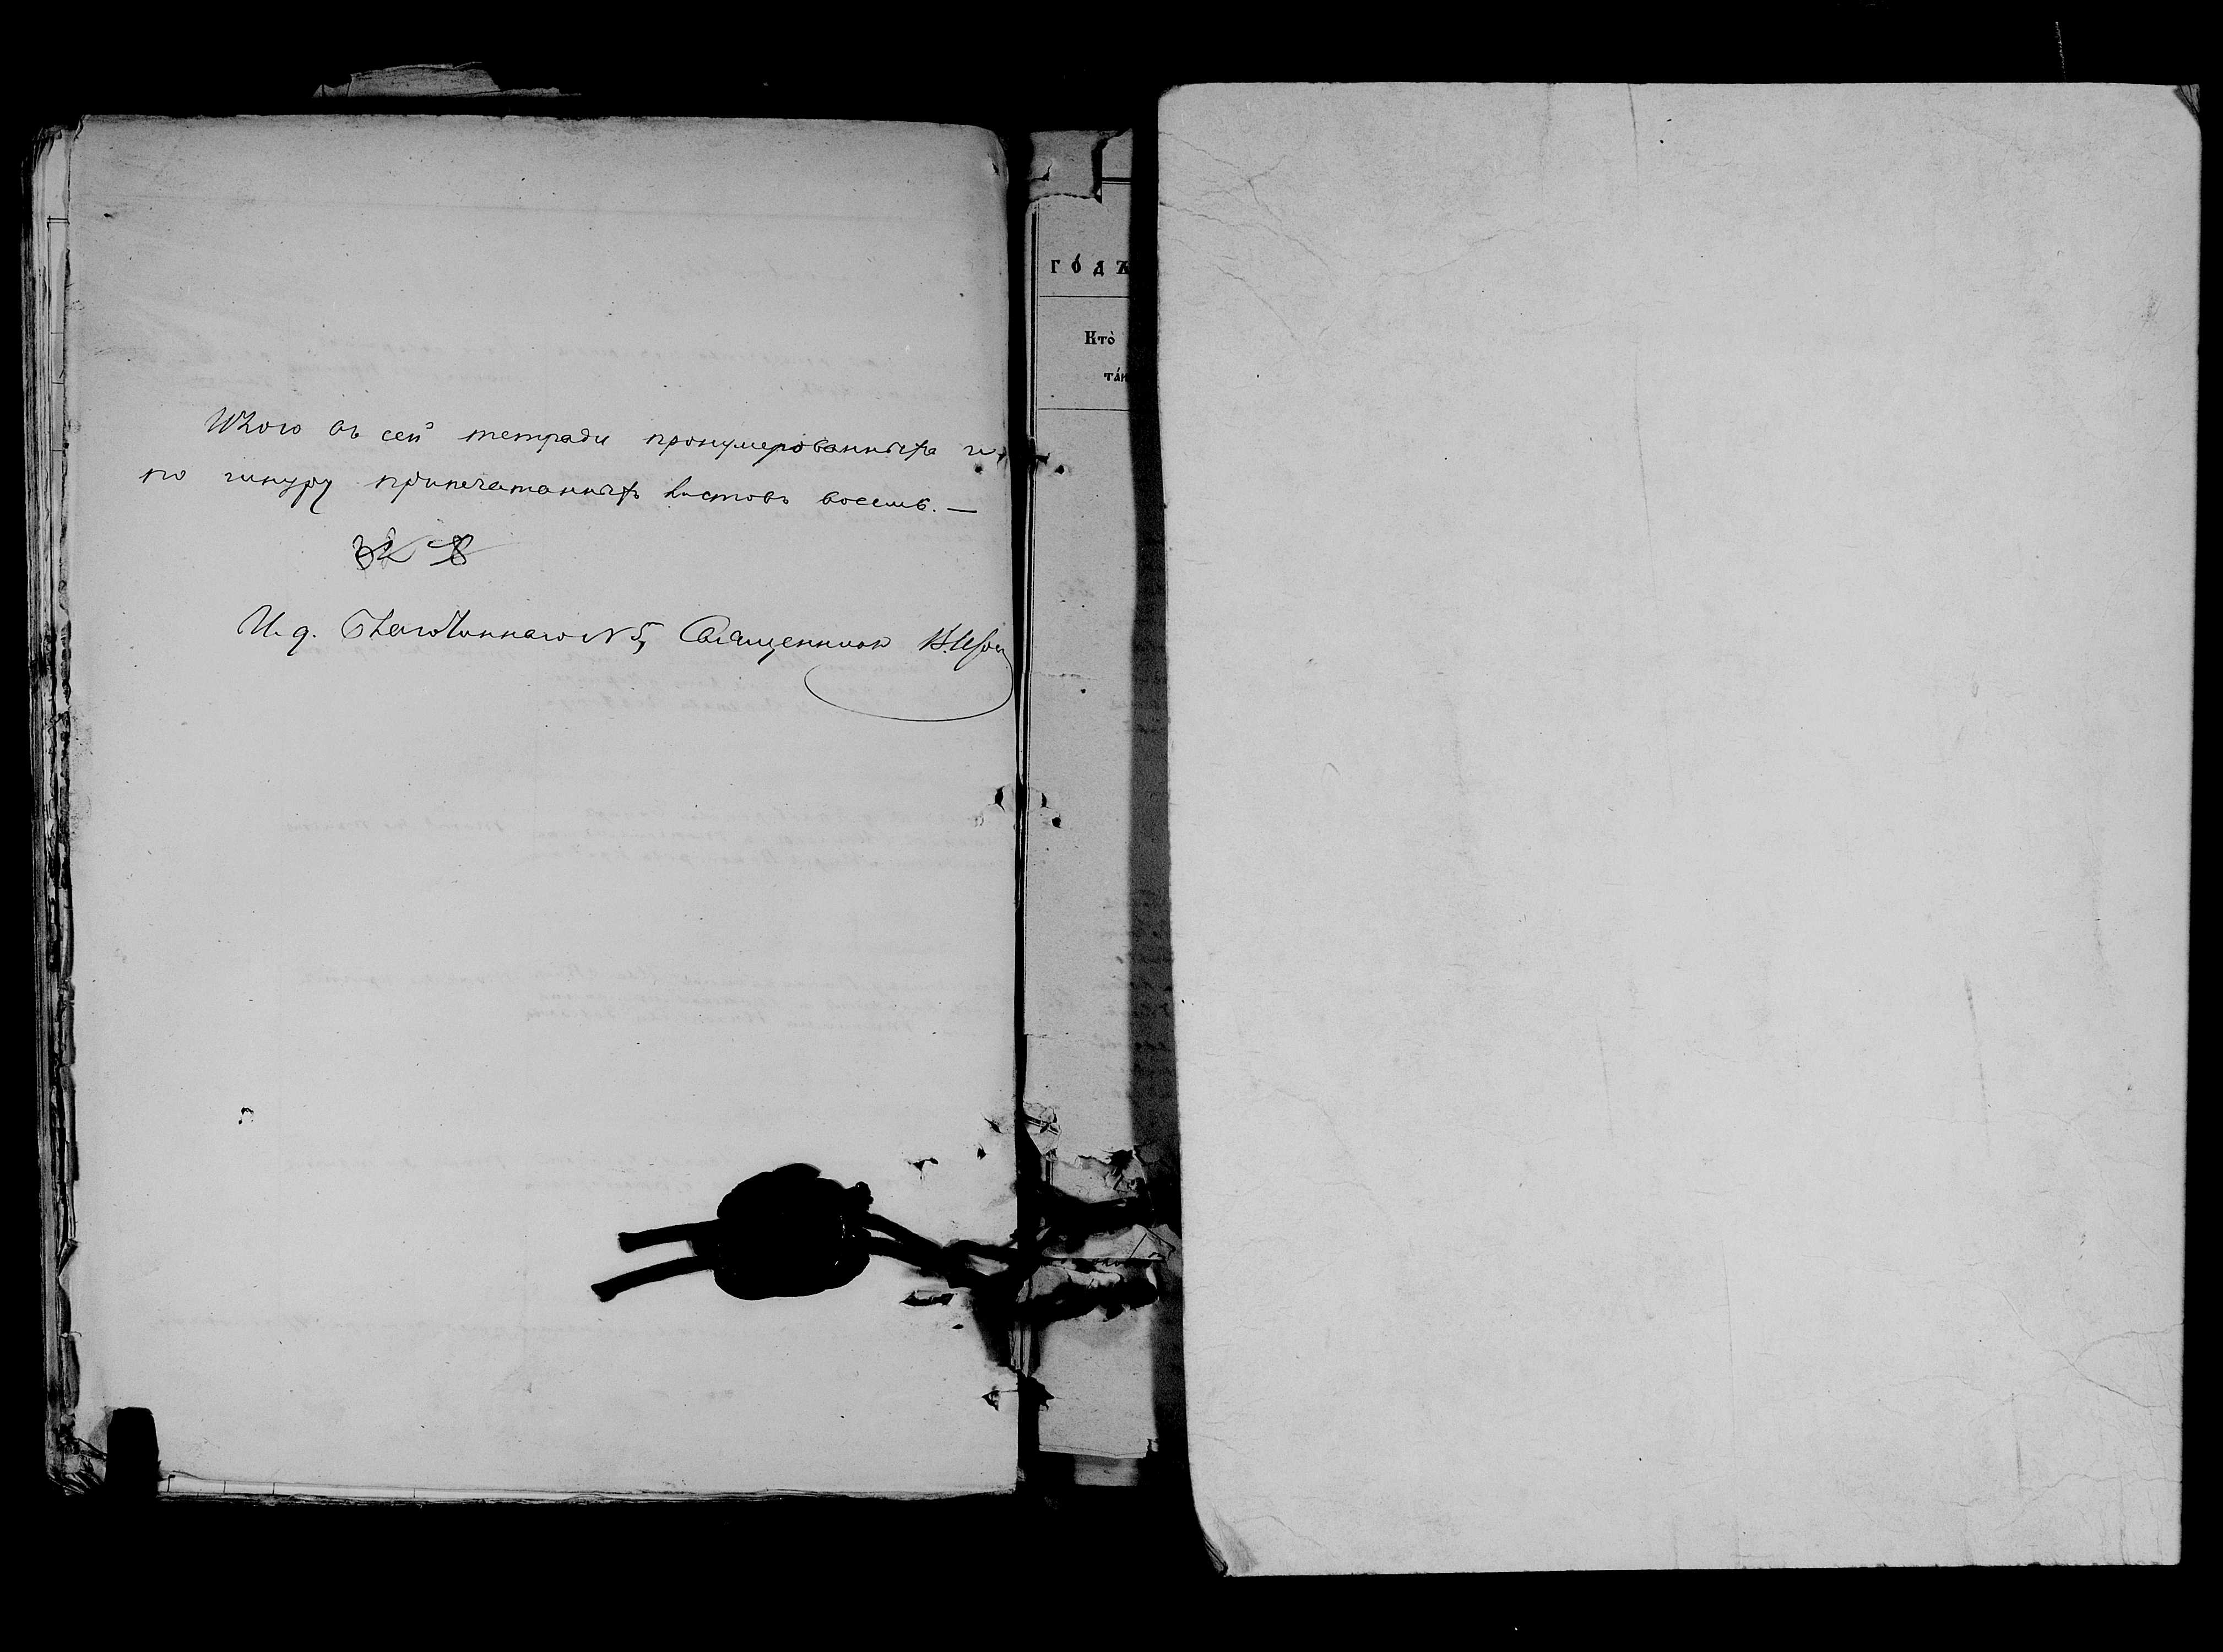 Итого въ сей тетради пронумерованныхъ и
по шнуру припечатанныхъ листовъ восемь. —
8
И. д. Благочиннаго N 5, Священникъ
го́дъ
Кто̀